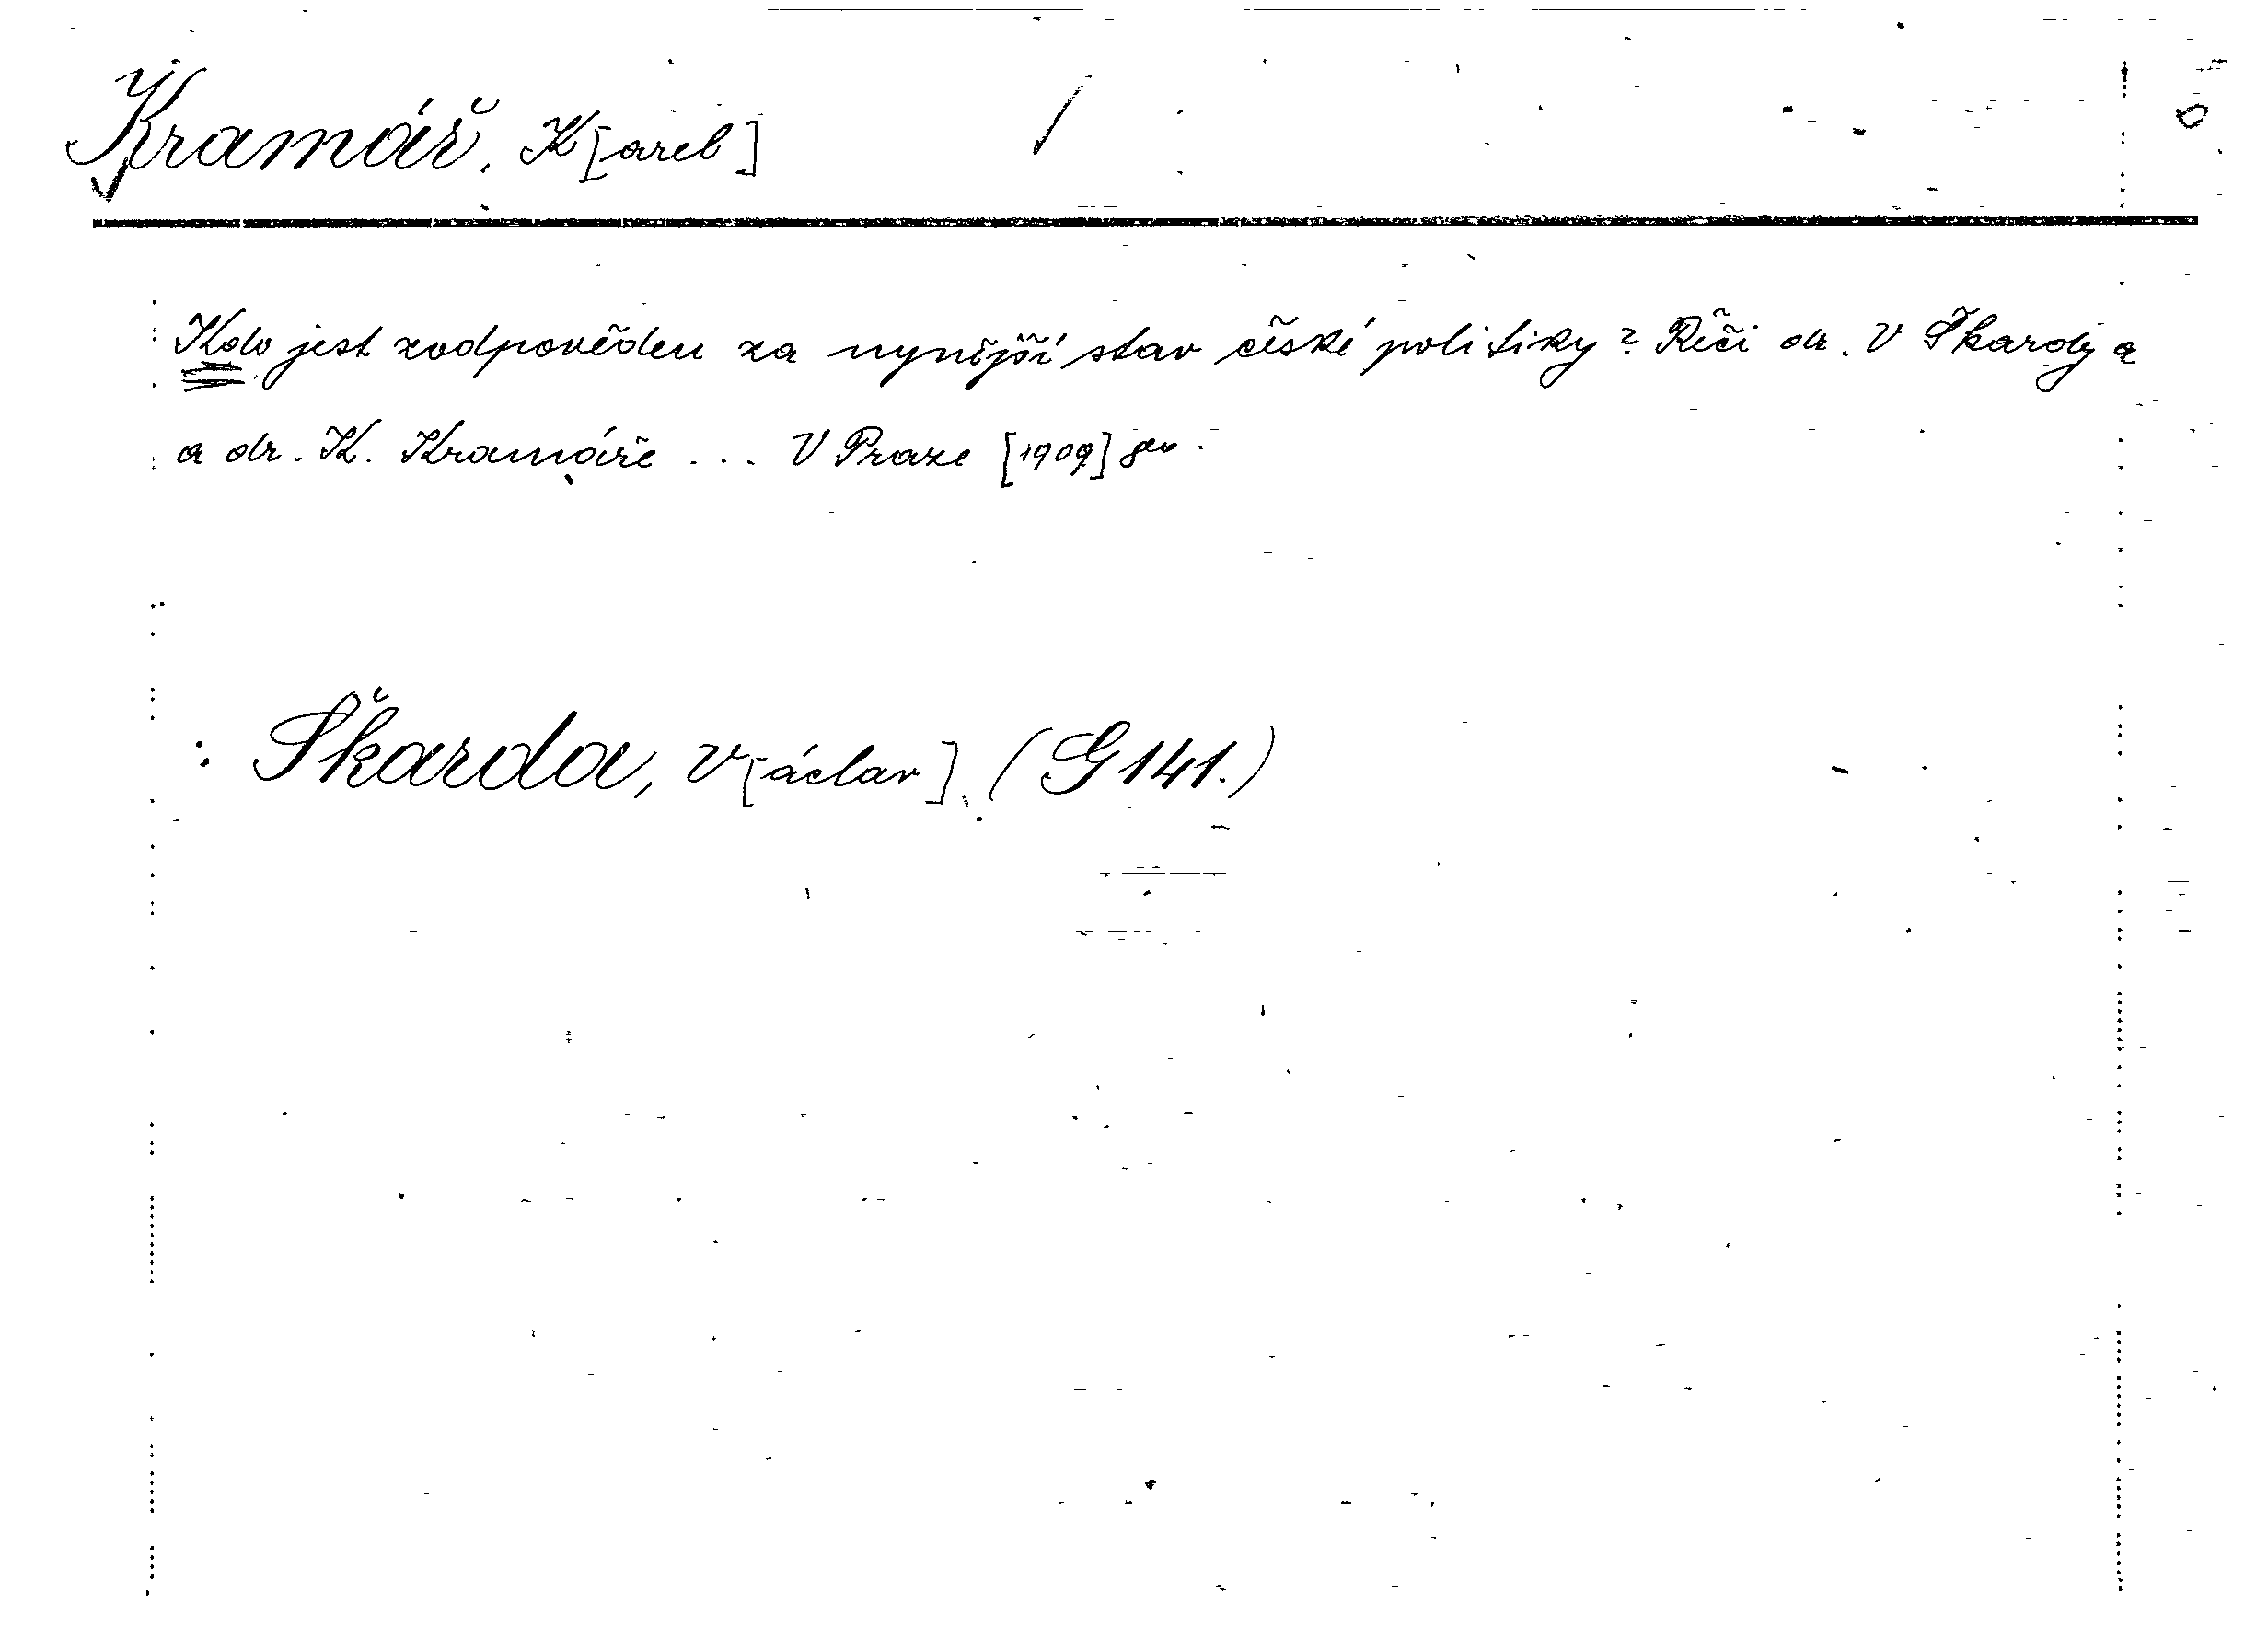 Kramář, K[arel]
Kdo jest zodpověden za nynější stav české politiky? Řeči dr. V Škardy a
a dr. K. Kramáře ... V Praze [1909] 8°.
: Škarda, V[áclav]. (G 141.)